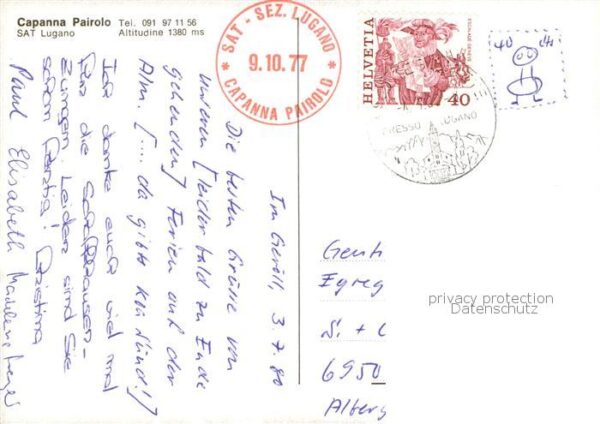 Capanna Pairolo Tel. 091 97 11 56
SAT Lugano Altitudine 1380 ms
* SAT - SEZ. LUGANO *
9.10.77
CAPANNA PAIROLO
HELVETIA
40
ESCALADE GENÈVE
BRESSO LUGANO
40 cts
Im Geröll, 3.7.80
Die besten Grüsse von
unseren [leider bald zu Ende
gehenden] Ferien auf der
Alm. [.... da gibts kein Sünd!]
Ich danke euch viel mal
für die Schaffhauser-
Zungen. Leider sind Sie
schon fertig! Kristina
Paul Elisabeth Madeleine
Genti
Egreg
S. + C
6950
Alberg
privacy protection
Datenschutz